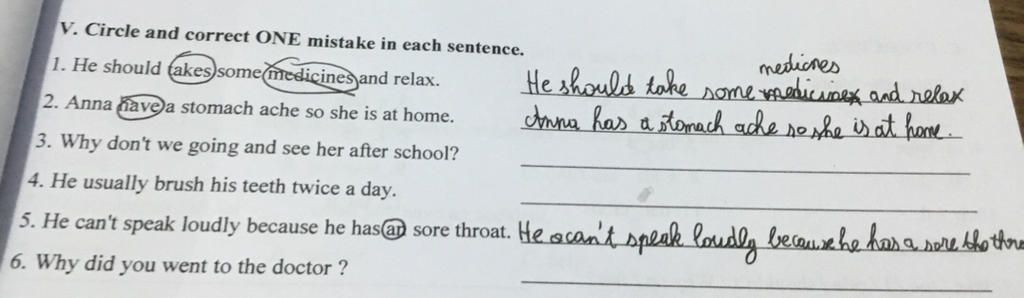 V. Circle and correct ONE mistake in each sentence.
1. He should takes some medicines and relax.
medicines
He should take some and relax
2. Anna have a stomach ache so she is at home.
Anna has a stomach ache so she is at home.
3. Why don't we going and see her after school?
4. He usually brush his teeth twice a day.
5. He can't speak loudly because he has an sore throat.
He can't speak loudly because he has a sore
6. Why did you went to the doctor ?